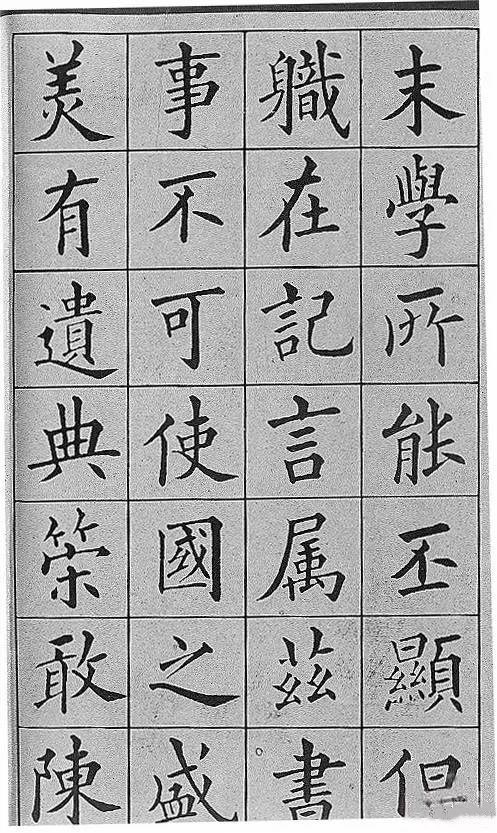 末學所能丕顯但
軄在記言属茲書
事不可使國之盛
羙有遺典筞敢陳